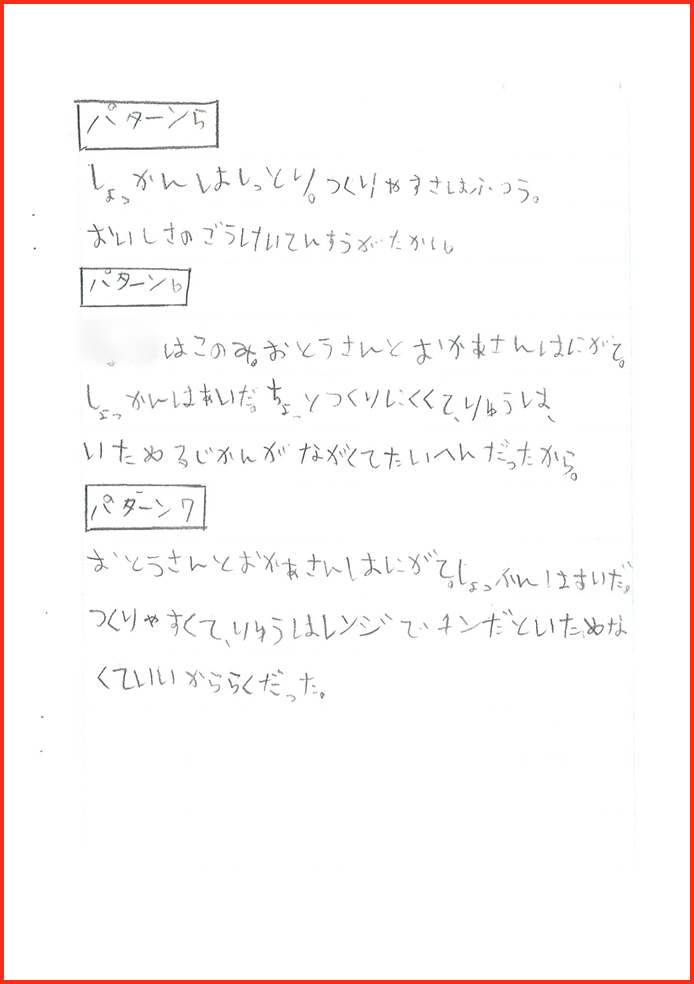 パターン5
しょっかんはしっとり。つくりやすさはふつう。
おいしさのごうけいてんすうがたかい。
パターン6
はこのみ。おとうさんとおかあさんはにがて。
しょっかんはあいだ。ちょっとつくりにくくて、りゆうは、
いためるじかんがながくてたいへんだったから。
パターン7
おとうさんとおかあさんはにがて。しょっかんはあいだ。
つくりやすくて、りゆうはレンジでチンだといためな
くていいかららくだった。